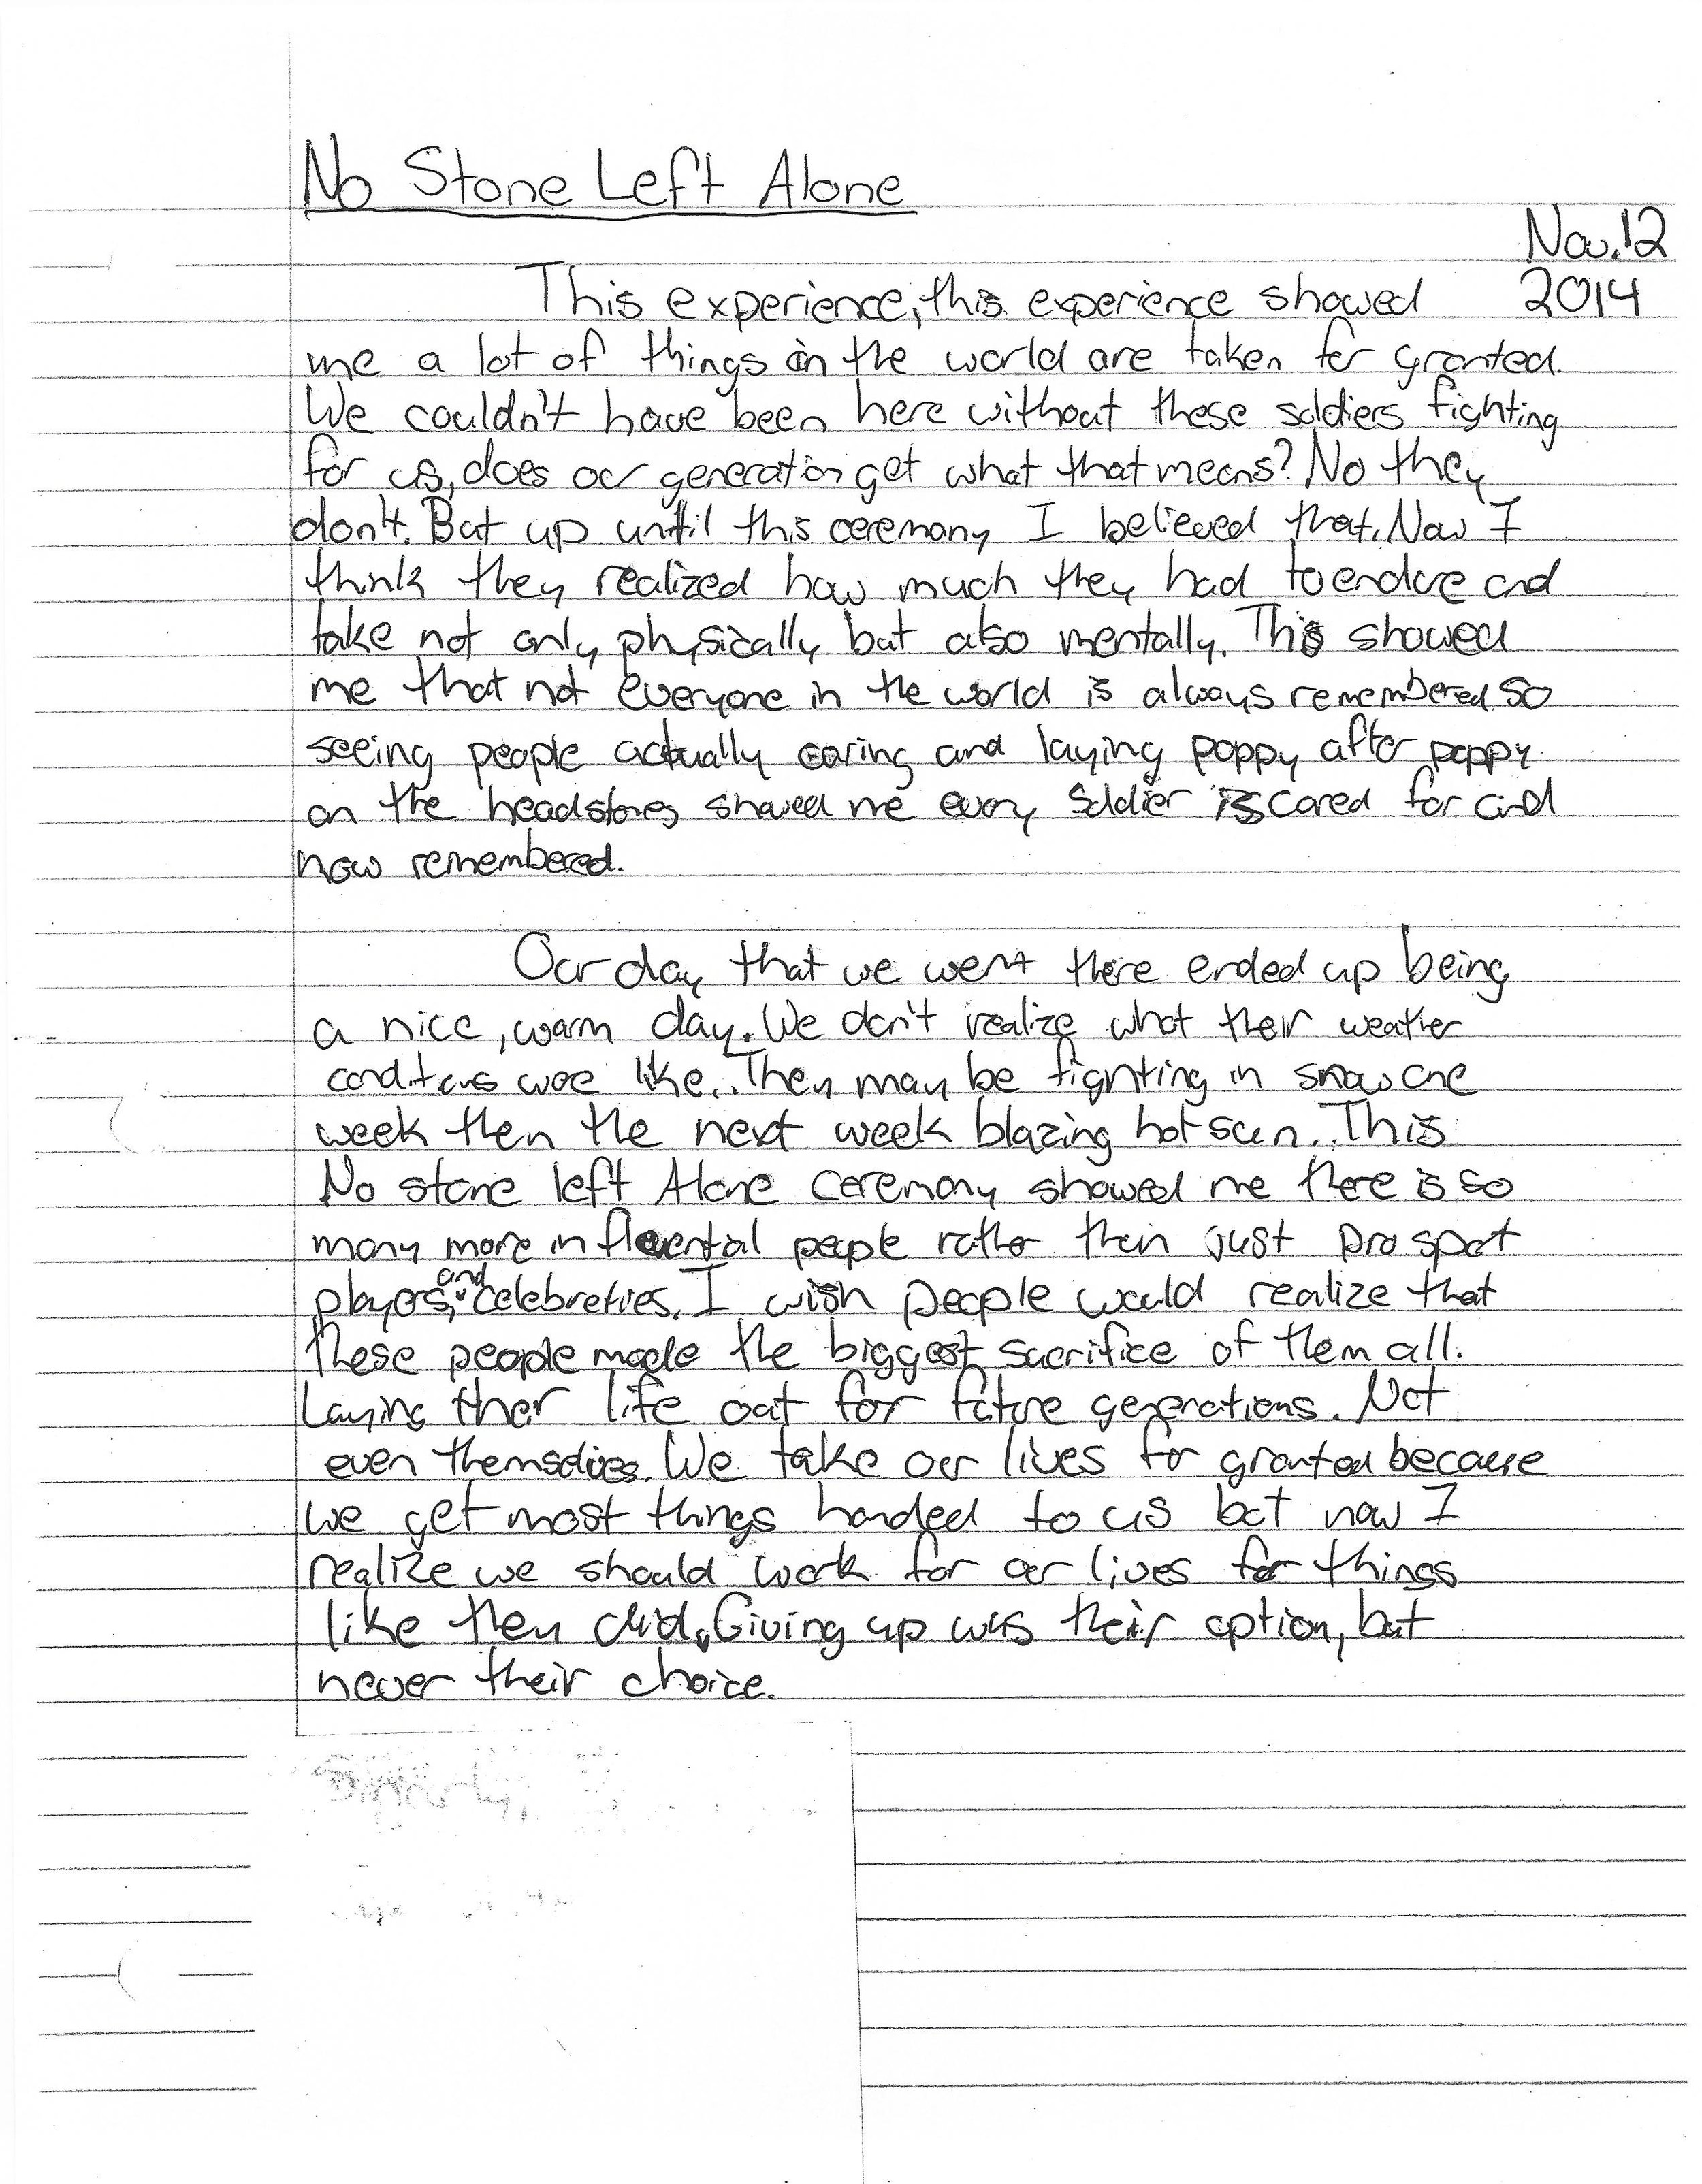 No Stone Left Alone
Nov. 12
2014
This experience, this experience showed
me a lot of things in the world are taken for granted.
We couldn't have been here without these soldiers fighting
for us, does our generation get what that means? No they
don't. But up until this ceremony I believed that. Now I
think they realized how much they had to endure and
take not only physically but also mentally. This showed
me that not everyone in the world is always remembered so
seeing people actually caring and laying poppy after poppy
on the headstones showed me every soldier is cared for and
now remembered.
Our day that we went there ended up being
a nice, warm day. We don't realize what their weather
conditions were like.. They may be fighting in snow one
week then the next week blazing hot sun.. This
No stone left Alone ceremony showed me there is so
many more influential people rather then just pro sport
players, and celebreties. I wish people would realize that
these people made the biggest sacrifice of them all.
Laying their life out for future generations. Not
even themselves. We take our lives for granted because
we get most things handed to us but now I
realize we should work for our lives for things
like they did. Giving up was their option, but
never their choice.